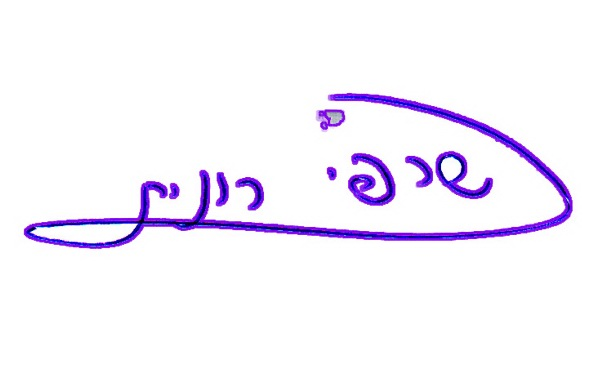 שרפי רונית